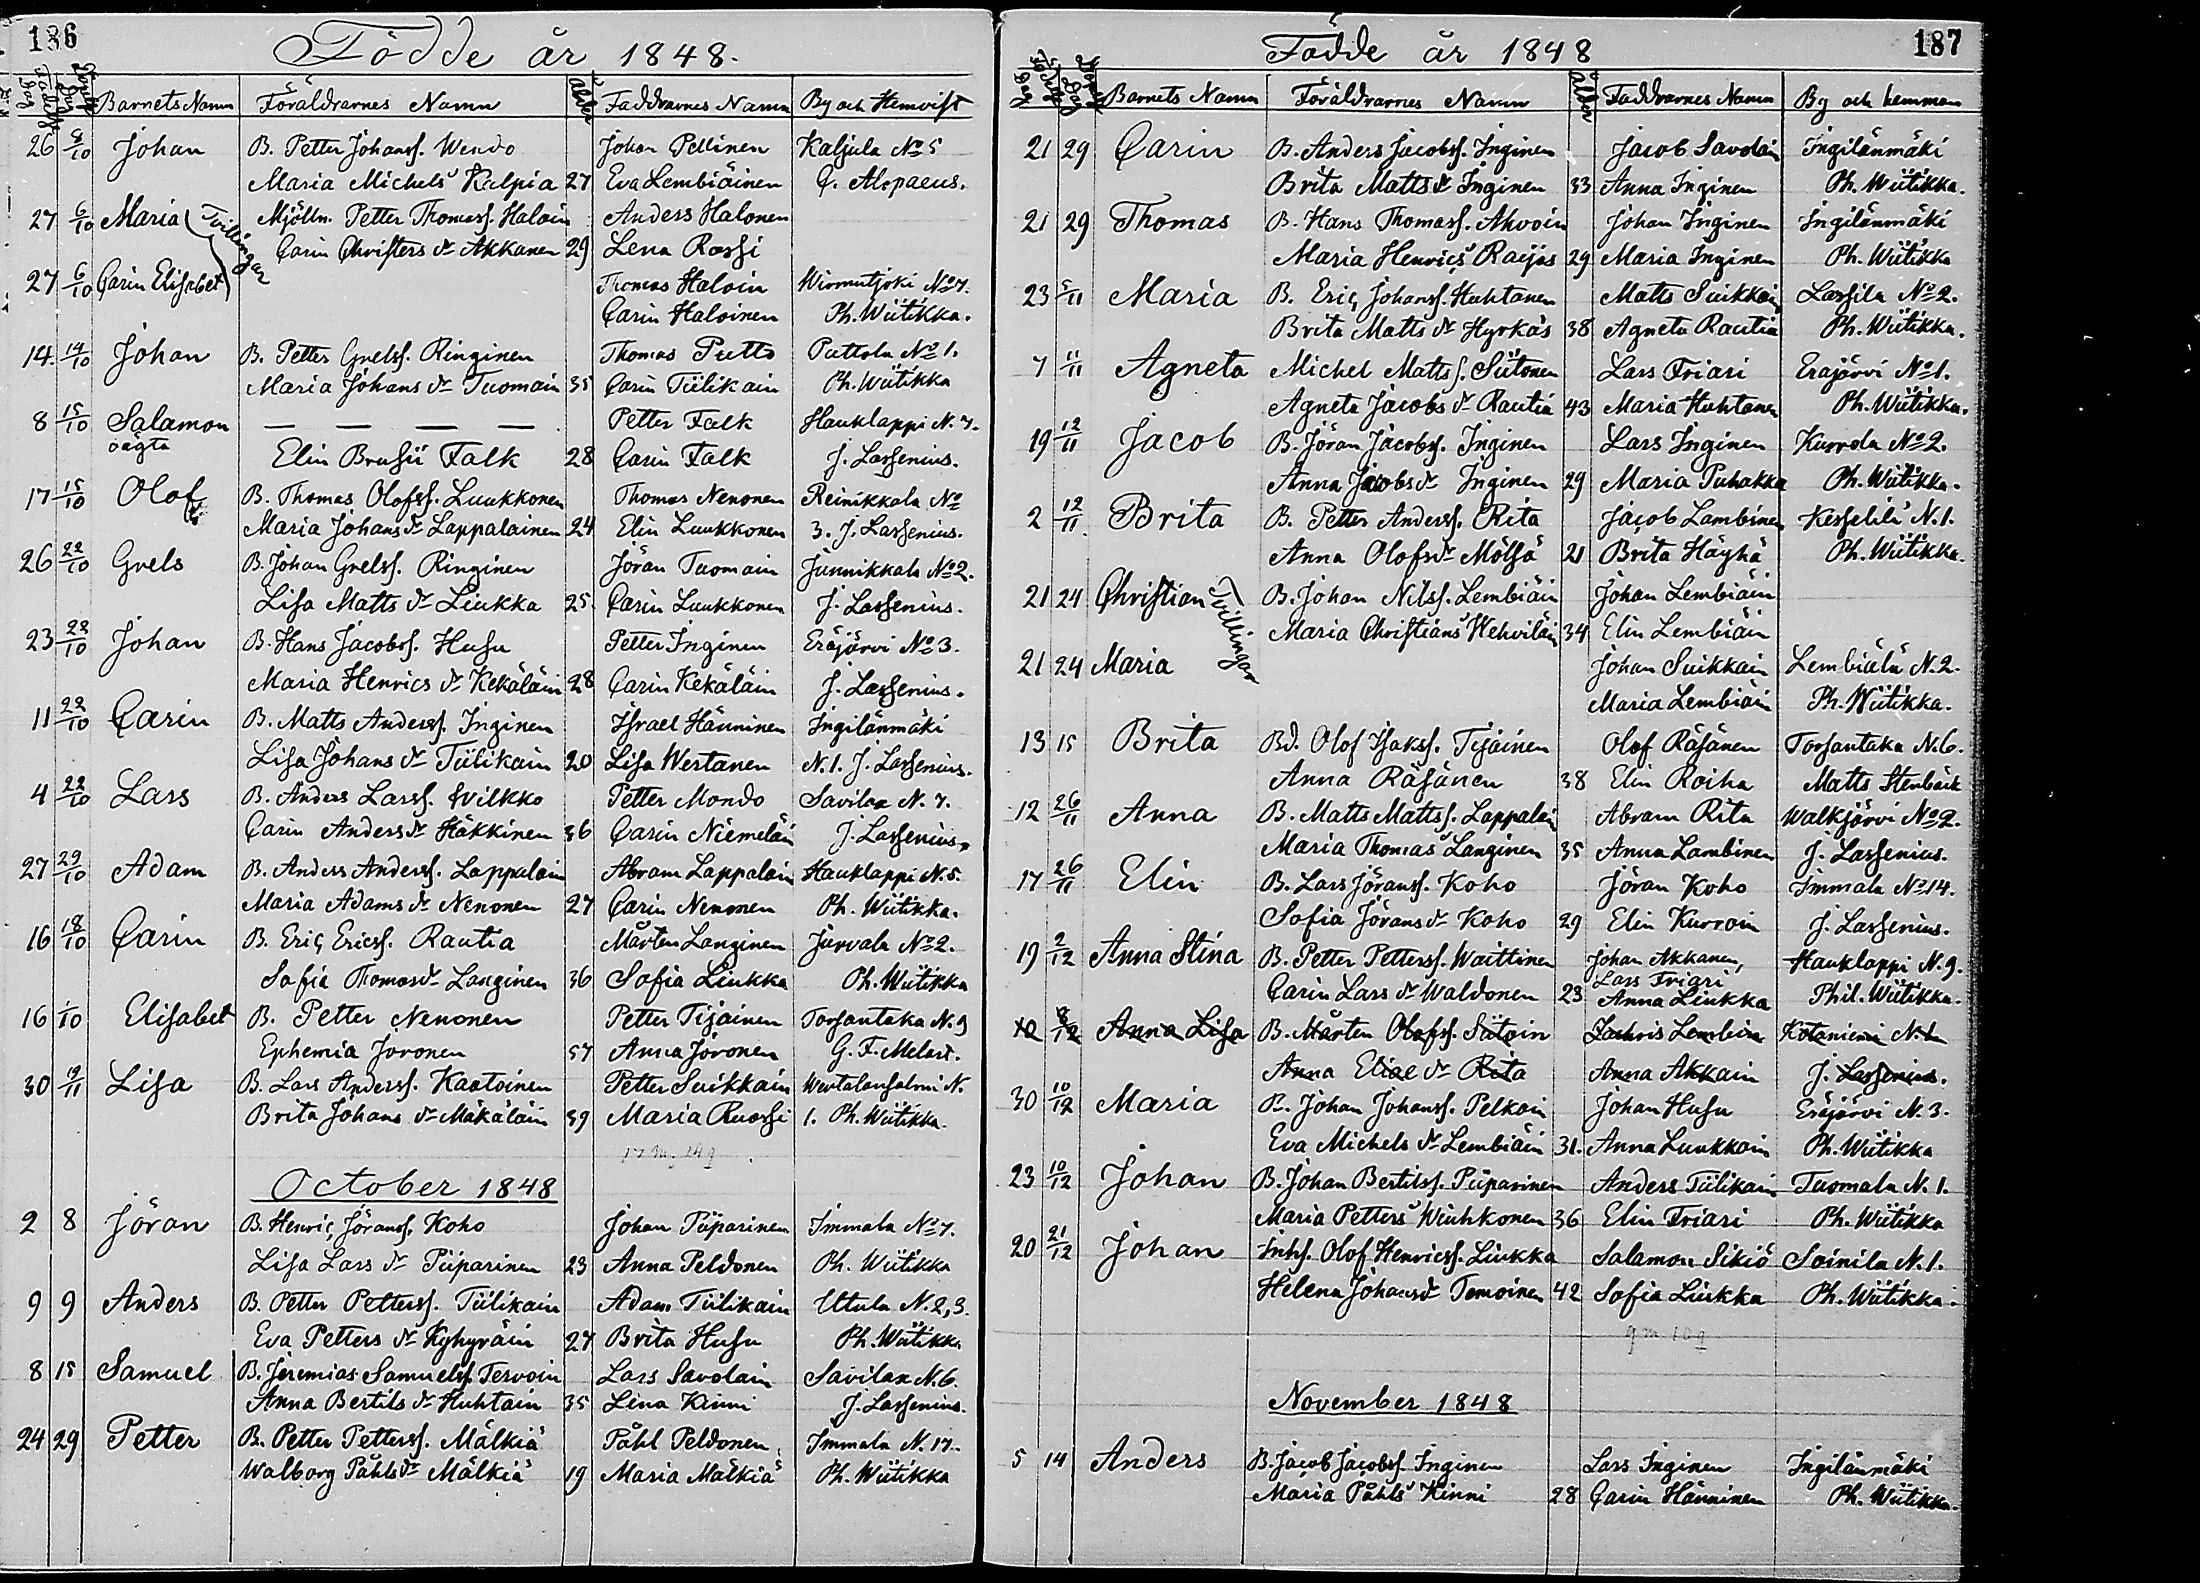 186
Födde år 1848.
Född Dag Döpt Dag Barnets Namn Föräldrarnes Namn Ålder Faddrarnes Namn By och Hemvist
26 8/10 Johan B. Petter Johanss. Wendo Johan Pellinen Kaljula No 5
Maria Michels Kulpia 27 Eva Lembiäinen C. Alopaeus.
27 6/10 Maria (Tvillingar Mjölln. Petter Thomass. Haloin Anders Halonen
Carin Christers dr Akkanen 29 Lena Rossi
27 6/10 Carin Elisabet) Thomas Haloin Wirmutjoki No 7.
Carin Haloinen Ph. Wiitikka.
14. 14/10 Johan B. Petter Grelss. Ringinen Thomas Putto Puttola No 1.
Maria Johans dr Tuomain 35 Carin Tiilikain Ph. Wiitikka
8 15/10 Salamon — — — — Petter Falk Hauklappi N. 7.
oägta Elin Brusii Falk 28 Carin Falk J. Lassenius.
17 15/10 Olof B. Thomas Olofss. Luukkonen Thomas Nenonen Reinikkala No
Maria Johans dr Lappalainen 24 Elin Luukkonen 3. J. Lassenius.
26 22/10 Grels B. Johan Grelss. Ringinen Jöran Tuomain Junnikkala No 2.
Lisa Matts dr Liukka 25. Carin Luukkonen J. Lassenius.
23 22/10 Johan B. Hans Jacobss. Husu Petter Inginen Eräjärvi No 3.
Maria Henrics dr Kekäläin 28 Carin Kekäläin J. Lassenius.
11 22/10 Carin B. Matts Anderss. Inginen Israel Hänninen Ingilänmäki
Lisa Johans dr Tiilikain 20 Lisa Wertanen N. 1. J. Lassenius.
4 22/10 Lars B. Anders Larss. Wilkko Petter Mondo Savilax N. 7.
Carin Anders dr Häkkinen 36 Carin Niemeläin J. Lassenius.
27 29/10 Adam B. Anders Anderss. Lappalain Abram Lappalain Hauklappi N. 5.
Maria Adams dr Nenonen 27 Carin Nenonen Ph. Wiitikka.
16 18/10 Carin B. Eric Ericss. Rautia Mårten Langinen Jurvala No 2.
Sofia Thomas dr Langinen 36 Sofia Liukka Ph. Wiitikka
16 1/10 Elisabet B. Petter Nenonen Petter Tijäinen Torsantaka N. 9
Ephemia Joronen 37 Anna Joronen G. F. Melart.
30 19/11 Lisa B. Lars Anderss. Kaatoinen Petter Suikkain Wentelansalmi N.
Brita Johans dr Mäkäläin 39 Maria Ruossi 1. Ph. Wiitikka.
October 1848
2 8 Jöran B. Henric Jöranss. Koho Johan Piiparinen Immala No 7.
Lisa Lars dr Piiparinen 23 Anna Peldonen Ph. Wiitikka
9 9 Anders B. Petter Petterss. Tiilikain Adam Tiilikain Utula N. 2, 3.
Eva Petters dr Kyhyräin 27 Brita Husu Ph. Wiitikka
8 15 Samuel B. Jeremias Samuelss. Tervoin Lars Savolain Savilax N. 6.
Anna Bertils dr Huhtain 35 Lena Kinni J. Lassenius.
24 29 Petter B. Petter Petterss. Mälkiä Påhl Peldonen Immala N. 17.
Walborg Påhls dr Mälkiä 19 Maria Mälkiä Ph. Wiitikka
187
Födde år 1848
Född Dag Döpt Dag Barnets Namn Föräldrarnes Namn Ålder Faddrarnes Namn By och hemman
21 29 Carin B. Anders Jacobss. Inginen Jacob Savolain Ingilänmäki
Brita Matts dr Inginen 33 Anna Inginen Ph. Wiitikka.
21 29 Thomas B. Hans Thomass. Ahvoin Johan Inginen Ingilänmäki
Maria Henrics Raijas 29 Maria Inginen Ph. Wiitikka
23 5/11 Maria B. Eric Johanss. Huhtanen Matts Suikkain Lassila No 2.
Brita Matts dr Hyrkäs 38 Agneta Rautia Ph. Wiitikka.
7 11/11 Agneta Michel Mattss. Siitonen Lars Friari Eräjärvi No 1.
Agneta Jacobs dr Rautia 43 Maria Huhtanen Ph. Wiitikka.
19 12/11 Jacob B. Jöran Jacobss. Inginen Lars Inginen Kurrola No 2.
Anna Jacobs dr Inginen 29 Maria Puhakka Ph. Wiitikka.
2 12/11 Brita B. Petter Anderss. Rita Jacob Lambinen Kesselilä N. 1.
Anna Olofs dr Mölsä 21 Brita Häyhä Ph. Wiitikka.
21 24 Christian Tvillingar B. Johan Nilss. Lembiäin Johan Lembiäin
Maria Christians Wehviläin 34 Elin Lembiäin
21 24 Maria Johan Suikkain Lembiälä N. 2.
Maria Lembiäin Ph. Wiitikka.
13 15 Brita Bd. Olof Isakss. Tijäinen Olof Räsänen Torsantaka N. 6.
Anna Räsänen 38 Elin Roiha Matts Stenbäck
12 26/11 Anna B. Matts Mattss. Lappalain Abram Rita Walkjärvi No 2.
Maria Thomas Langinen 35 Anna Lambinen J. Lassenius.
17 26/11 Elin B. Lars Jöranss. Koho Jöran Koho Immala No 14.
Sofia Jörans dr Koho 29 Elin Kurroin J. Lassenius.
19 2/12 Anna Stina B. Petter Petterss. Waittinen Johan Akkanen, Hauklappi N. 9.
Lars Friari
Carin Lars dr Waldonen 23 Anna Liukka Phil. Wiitikka.
10 8/12 Anna Lisa B. Mårten Olofss. Siitoin Zachris Lembiein Kotaniemi N. 1.
Anna Eliae dr Rita Anna Akkain J. Lassenius.
30 10/12 Maria B. Johan Johanss. Pelkoin Johan Husu Eräjärvi N. 3.
Eva Michels dr Lembiäin 31. Anna Luukkain Ph. Wiitikka
23 10/12 Johan B. Johan Bertilss. Piiparinen Anders Tiilikain Tuomala N. 1.
Maria Petters Wiuhkonen 36 Elin Friari Ph. Wiitikka
20 21/12 Johan Inhs. Olof Henricss. Liukka Salamon Sikiö Soinila N. 1.
Helena Johans dr Temoinen 42 Sofia Liukka Ph. Wiitikka.
November 1848
5 14 Anders B. Jacob Jacobss. Inginen Lars Inginen Ingilänmäki
Maria Påhls Kinni 28 Carin Hänninen Ph. Wiitikka.